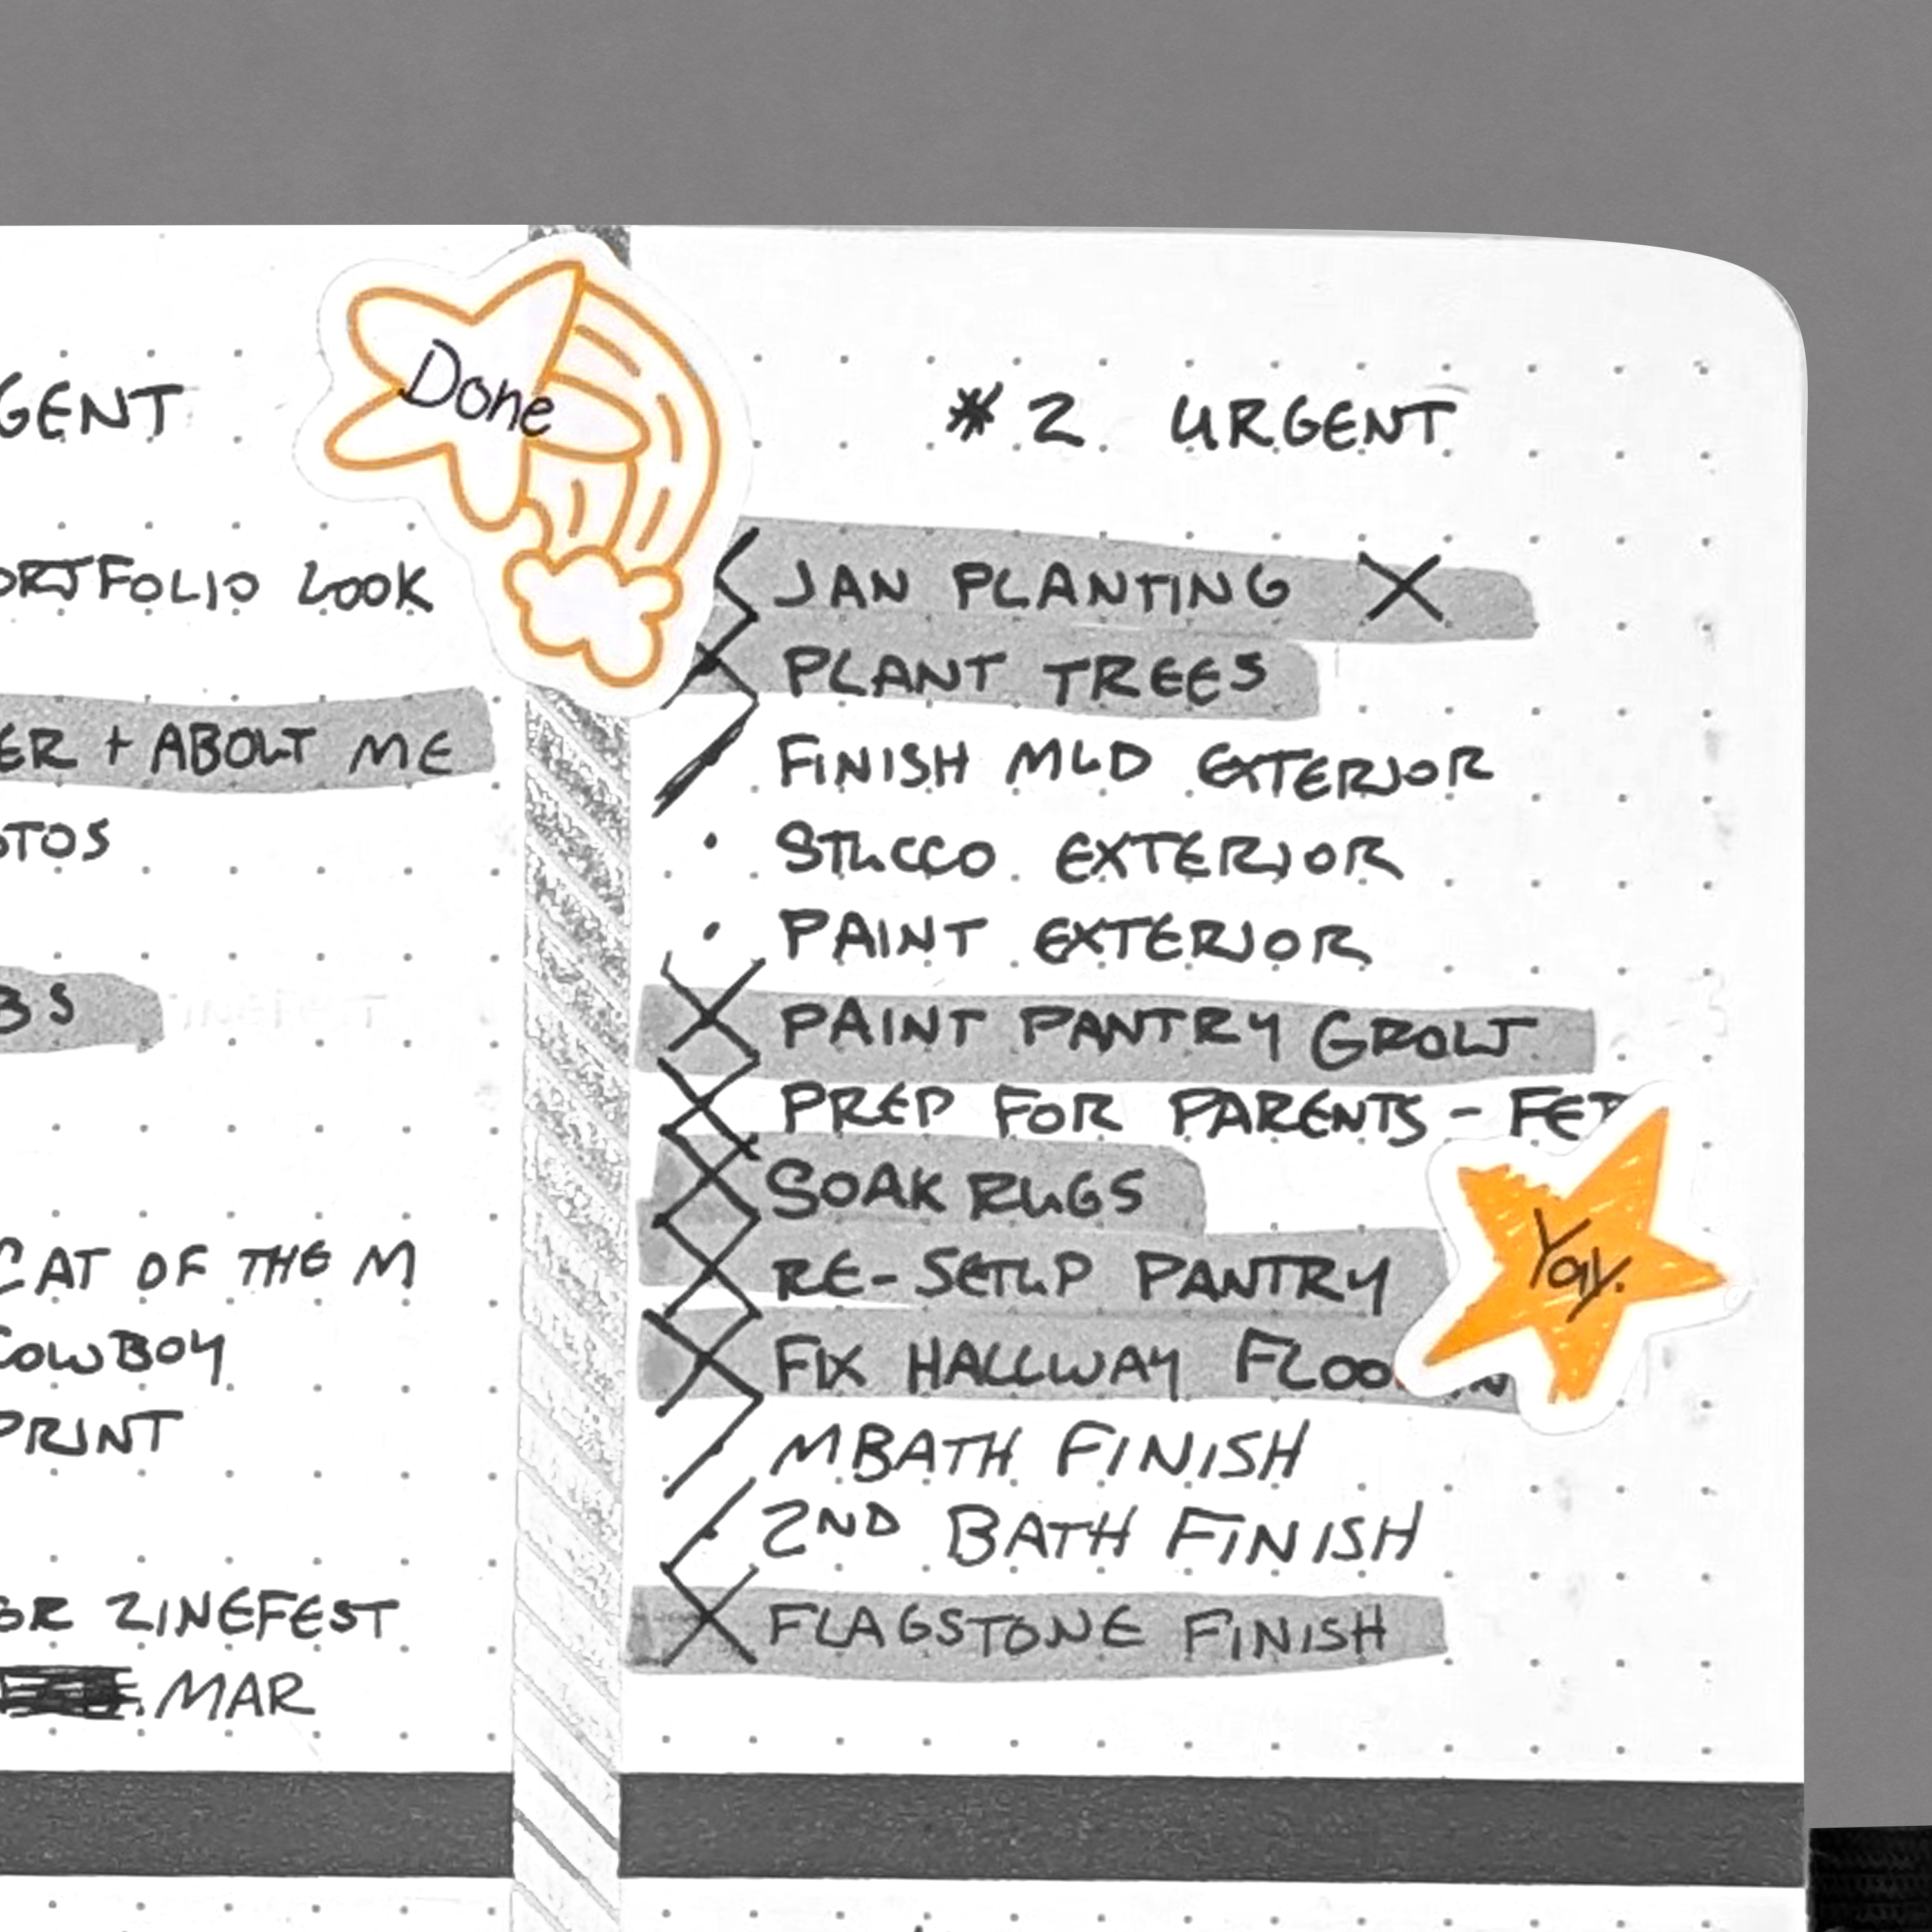 GENT
ORTFOLIO LOOK
ER + ABOUT ME
OTOS
BS
CAT OF THE M
COWBOY
PRINT
OR ZINEFEST
MAR
Done
#2 URGENT
JAN PLANTING X
PLANT TREES
FINISH MUD EXTERIOR
STUCCO EXTERIOR
PAINT EXTERIOR
PAINT PANTRY GROUT
PREP FOR PARENTS - FEB
SOAK RUGS
RE-SETUP PANTRY
FIX HALLWAY FLOO
MBATH FINISH
2ND BATH FINISH
FLAGSTONE FINISH
Yay.